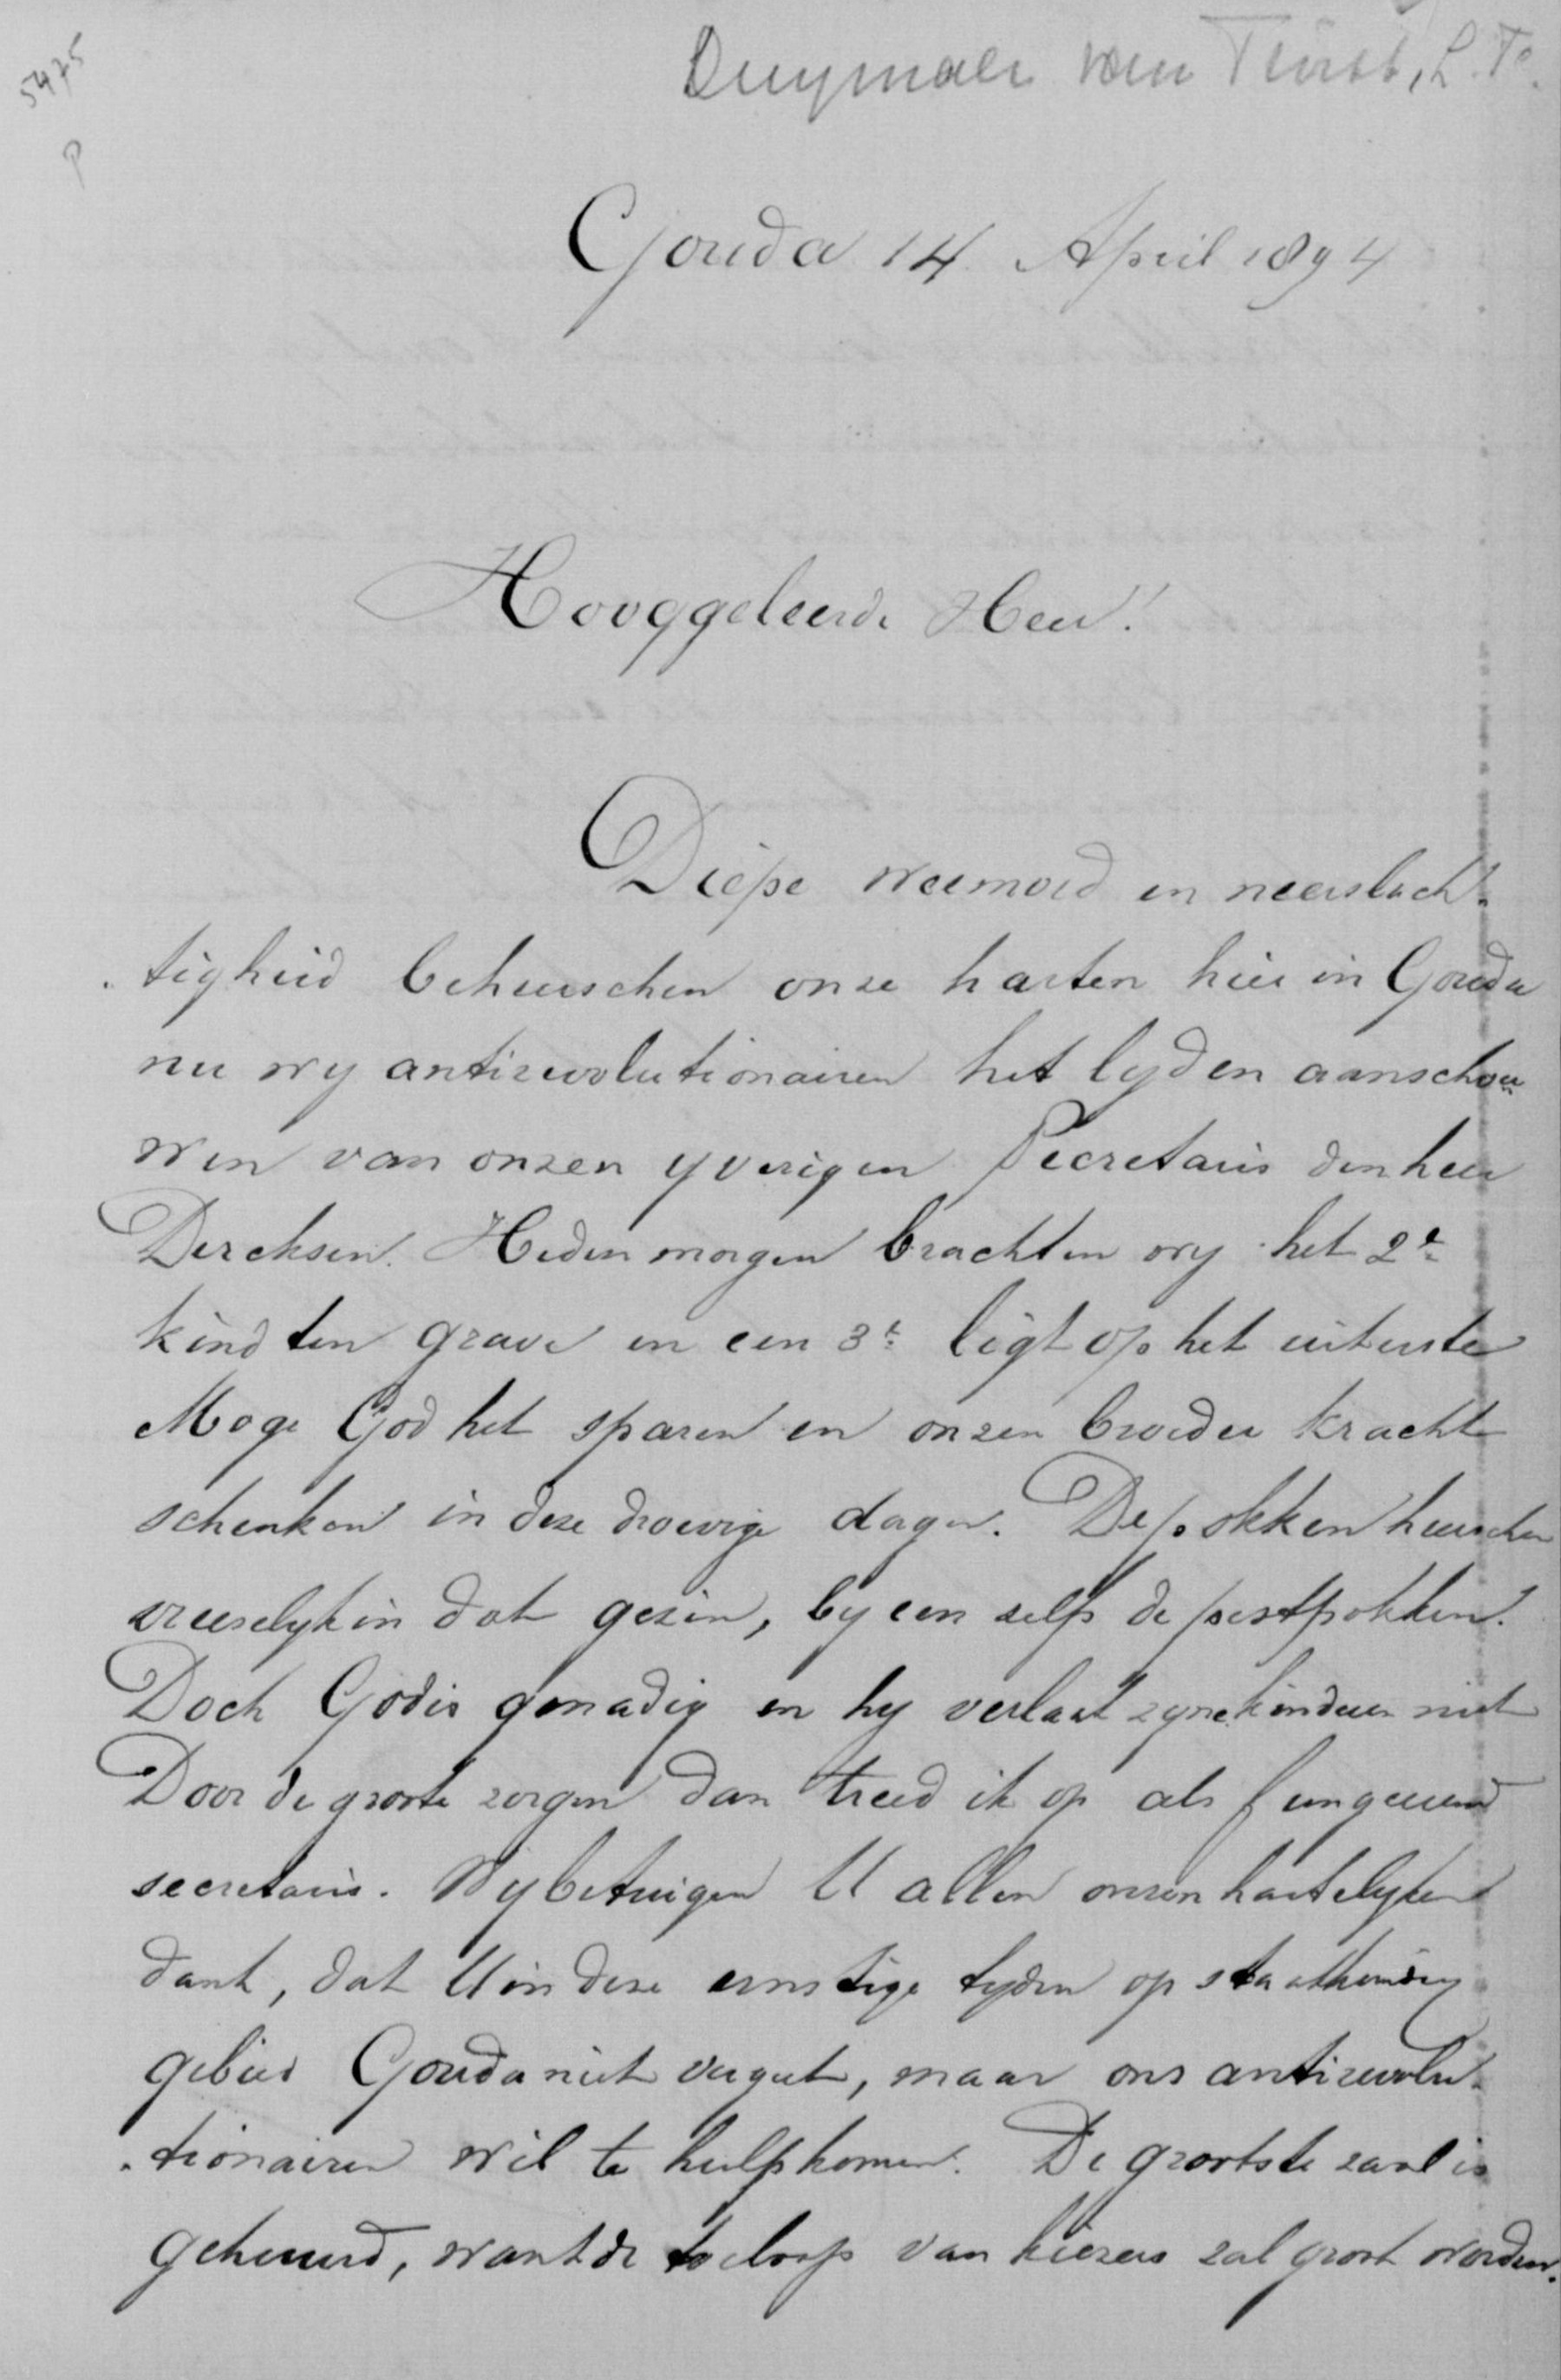 5475
P
Duymaer van Twist, L. F.
Gouda 14 April 1894
Hooggeleerde Heer!
Diepe weemoed en neerslach„
„tigheid beheerschen onze harten hier in Gouda
nu wy antirevolutionairen het lyden aanschou„
wen van onzen yverigen Secretaris den heer
Dercksen. Heden morgen brachten wy het 2e
kind ten grave en een 3e ligt op het uiterste
Moge God het sparen en onzen broeder kracht
schenken in deze droevige dagen. De pokken heerschen
vreeselyk in dat gezin, by een zelfs de pestpokken.
Doch God is genadig en hy verlaat zyne kinderen niet
Door de groote zorgen dan treed ik op als fungeerend
secretaris. Wy betuigen U allen onzen hartelyken
dank, dat U in deze ernstige tyden op staatkundig
gebied Gouda niet vergeet, maar ons antirevolu„
„tionairen wil te hulp komen. De grootste zaal is
gehuurd, want de toeloop van kiezers zal groot worden.